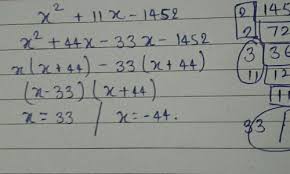 x² + 11x - 1452
x² + 44x - 33x - 1452
x(x+44) - 33(x+44)
(x-33) (x+44)
x = 33 / x = -44.
2 145
2 72
3 36
11 12
11
33